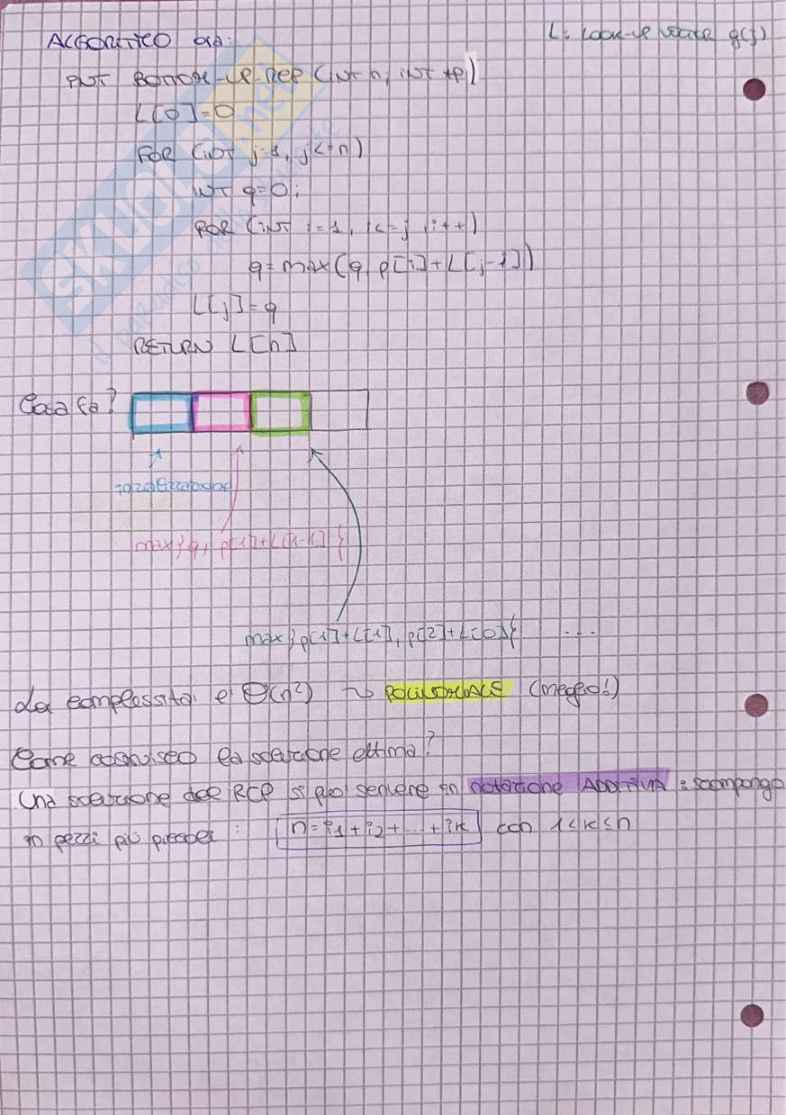 ALGORITMO ORA: L: LOOK-UP TABLE q(j)
INT BOTTOM-UP-RCP (INT n, INT *p)
L[0]=0
FOR (INT j=1, j<=n)
INT q=0;
FOR (INT i=1, i<=j, i++)
q=max(q, p[i]+L[j-1])
L[j]=q
RETURN L[n]
Cosa fa?
inizializzazione
max{q, p[1]+L[1-1]}
max{p[1]+L[1], p[2]+L[0]} ...
La complessità è Θ(n²) ~> POLINOMIALE (meglio!)
Come costruisco la soluzione ottima?
Una soluzione del RCP si può scrivere in NOTAZIONE ADDITIVA: scompongo
in pezzi più piccoli: n=i1+i2+...+ik con 1<k≤n
SKUOLA.net